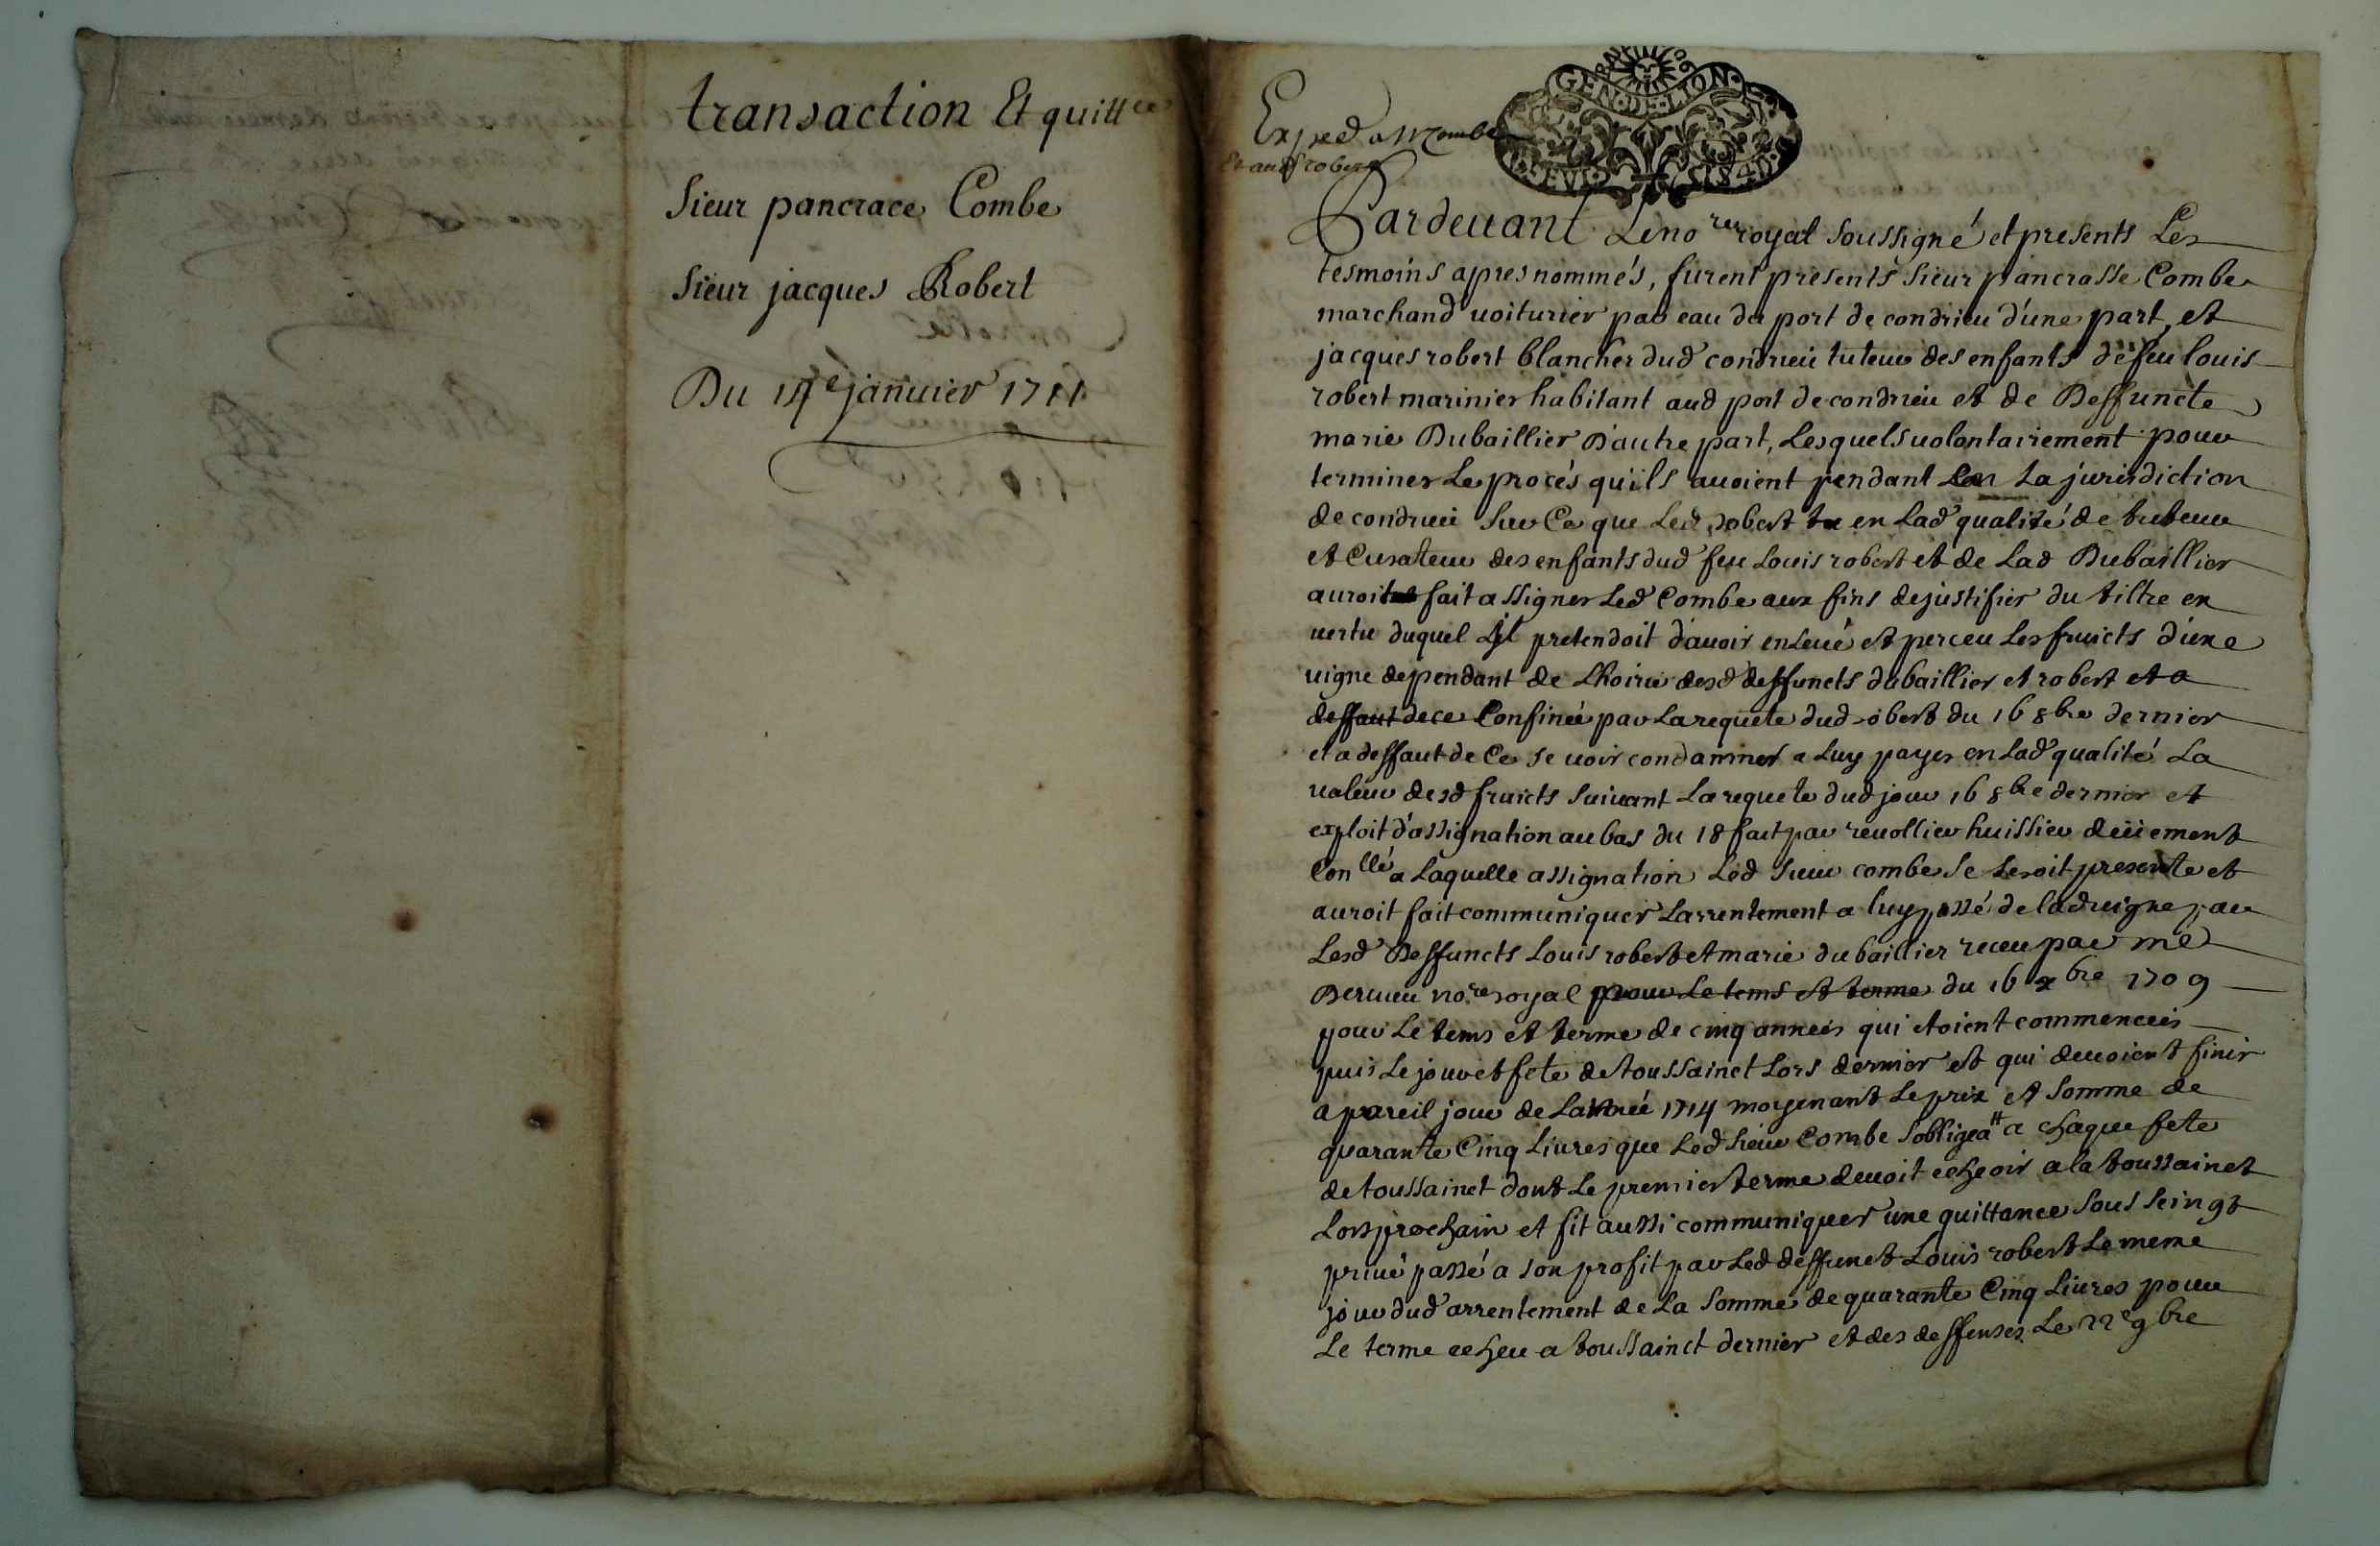 transaction Et quitt.ce
Sieur pancrace Combe
Sieur jacques Robert
Du 14e januier 1711
Exped a Mr Combe
Et aud robert
GEN DE LION
Pardeuant Le no.re royal soussigné et presents Les
tesmoins apres nommés, furent presents Sieur pancrasse Combe
marchand uoiturier par eau du port de condrieu d'une part, et
jacques robert blancher dud condrieu tuteur des enfants de feu louis
robert marinier habitant aud port de condrieu et de Deffuncte
marie Dubaillier D'autre part, Lesquels uolontairement pour
terminer Le procés qu'ils auoient pendant en La jurisdiction
de condrieu Sur Ce que Led robert en Lad qualité de tuteur
et Curateur des enfants dud feu Louis robert et de Lad Dubaillier
auroit fait assigner Led Combe aux fins de justifier du tiltre en
uertu duquel il pretendoit d'auoir enleué et perceu Les fruicts d'une
uigne dependant de L'hoirie desd deffuncts dubaillier et robert et a
deffaut de ce Confinée par La requete dud robert du 16 8bre dernier
et a deffaut de Ce se uoir condamner a Luy payer en Lad qualité La
ualeur desd fruicts suiuant La requete dud jour 16 8bre dernier et
exploit d'assignation au bas du 18 fait par reuollier huissier deüement
Con.llé a Laquelle assignation Led Sieur combe se seroit presenté et
auroit fait communiquer L'arrentement a luy passé de lad uigne par
Lesd Deffuncts Louis robert et marie dubaillier receu par me
no.re royal pour Le tems et terme du 16 xbre 1709
pour Le tems et terme de cinq années qui etoient commencées
puis Le jour et fete de toussainct Lors dernier et qui deuoient finir
a pareil jour de L'année 1714 moyenant Le prix et Somme de
quarante Cinq Liures que Led Sieur Combe S'obligea a chaque fete
de toussainct dont Le premier terme deuoit echeoir a la toussainct
Lors prochain et fit aussi communiquer une quittance sous seingt
priué passé a son profit par Led deffunct Louis robert Le meme
jour dud arrentement de La Somme de quarante Cinq Liures pour
Le terme echeu a toussainct dernier et des deffenses Le 22e 9bre